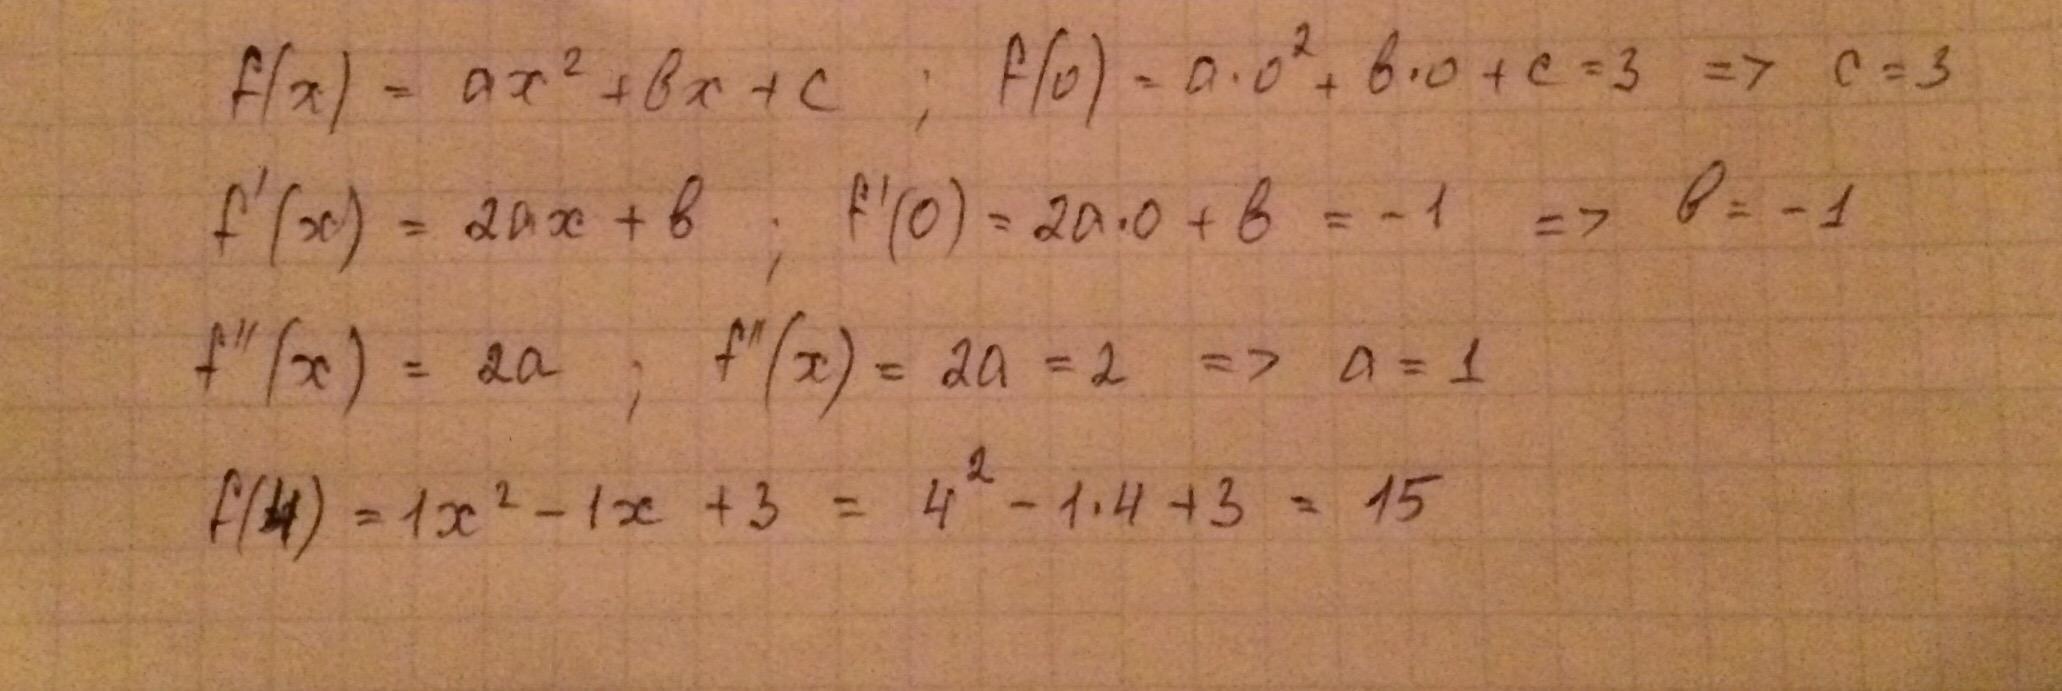 f(x) = ax² + bx + c ; f(0) = a·0² + b·0 + c = 3 => c = 3
f'(x) = 2ax + b ; f'(0) = 2a·0 + b = -1 => b = -1
f''(x) = 2a ; f''(x) = 2a = 2 => a = 1
f(4) = 1x² - 1x + 3 = 4² - 1·4 + 3 = 15